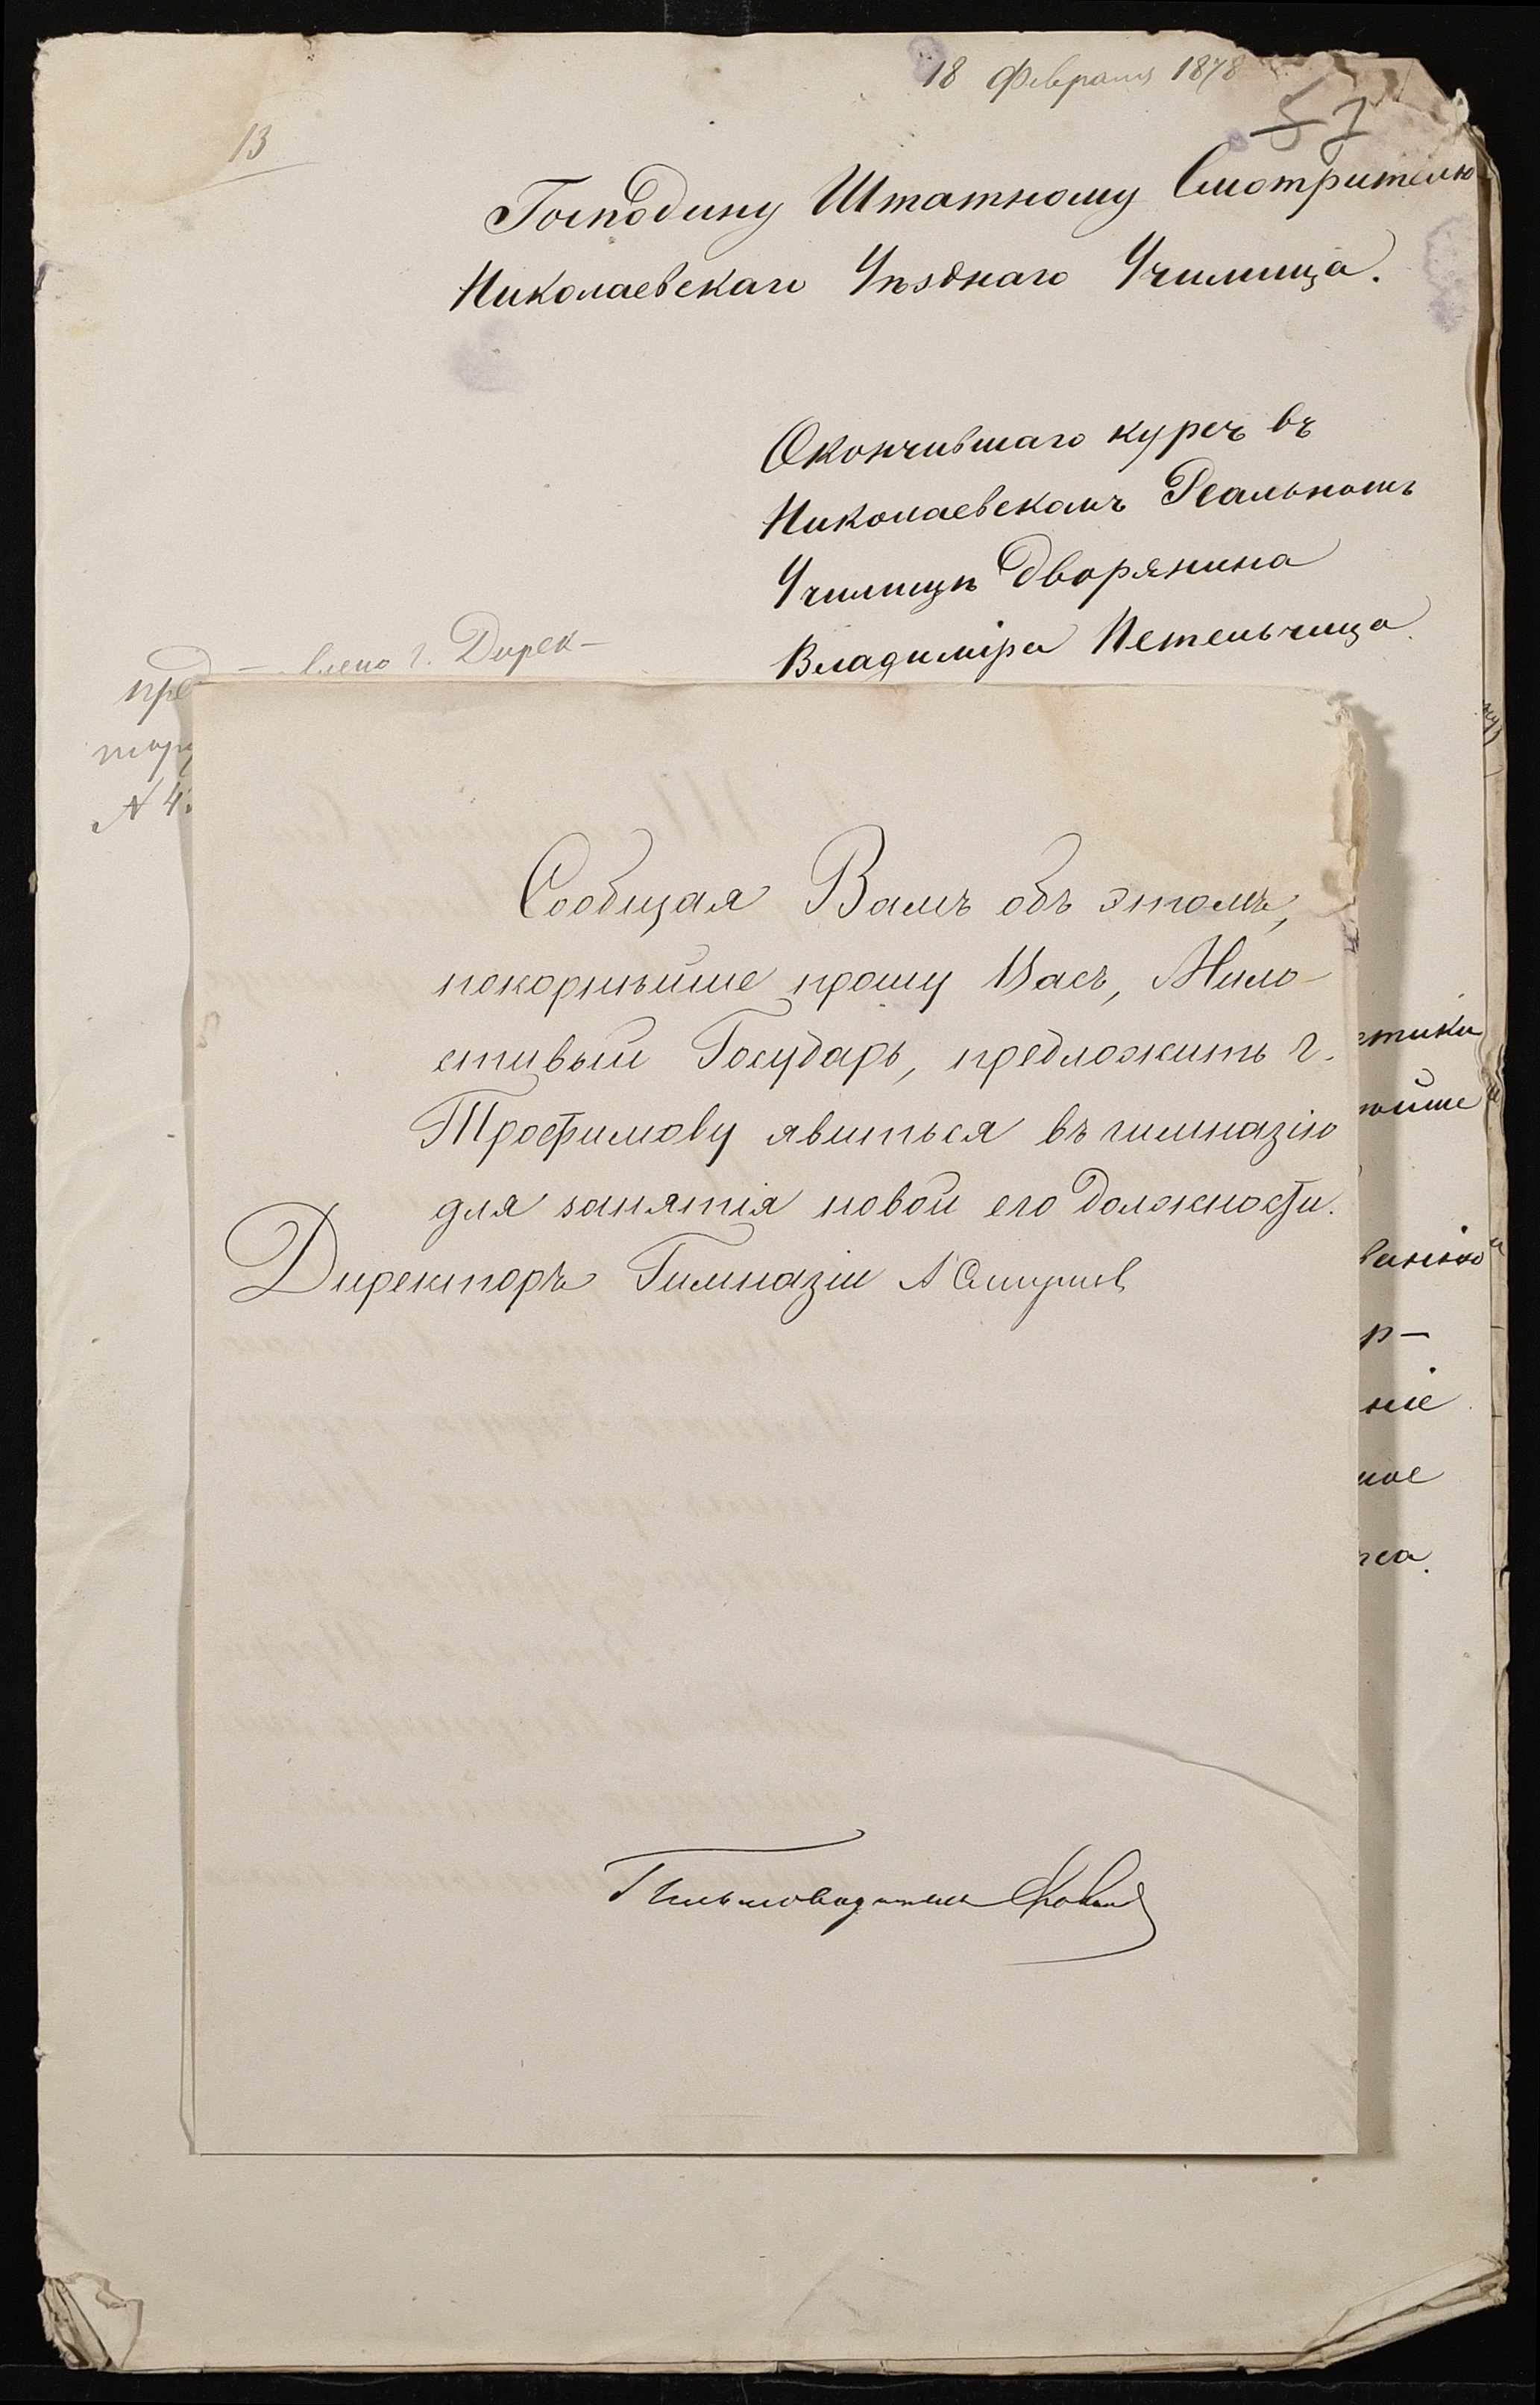 18 Февраля 1878
57
13
Господину Штатному Смотрителю
Николаевскаго Уѣзднаго Училища.
Окончившаго курсъ въ
Николаевскомъ Реальномъ
Училищѣ дворянина
Владиміра Нетельчица
пред — влено г. Дирек-
№ 4
Сообщая Вамъ объ этомъ,
покорнѣйше прошу Васъ, Мило-
стивый Государь, предложить г.
Трофимову явиться въ гимназію
для занятія новой его должности.
Директоръ Гимназіи А Смирнов
Письмоводитель
стики
нѣйше
ванію
р-
ніе
ное
рса.